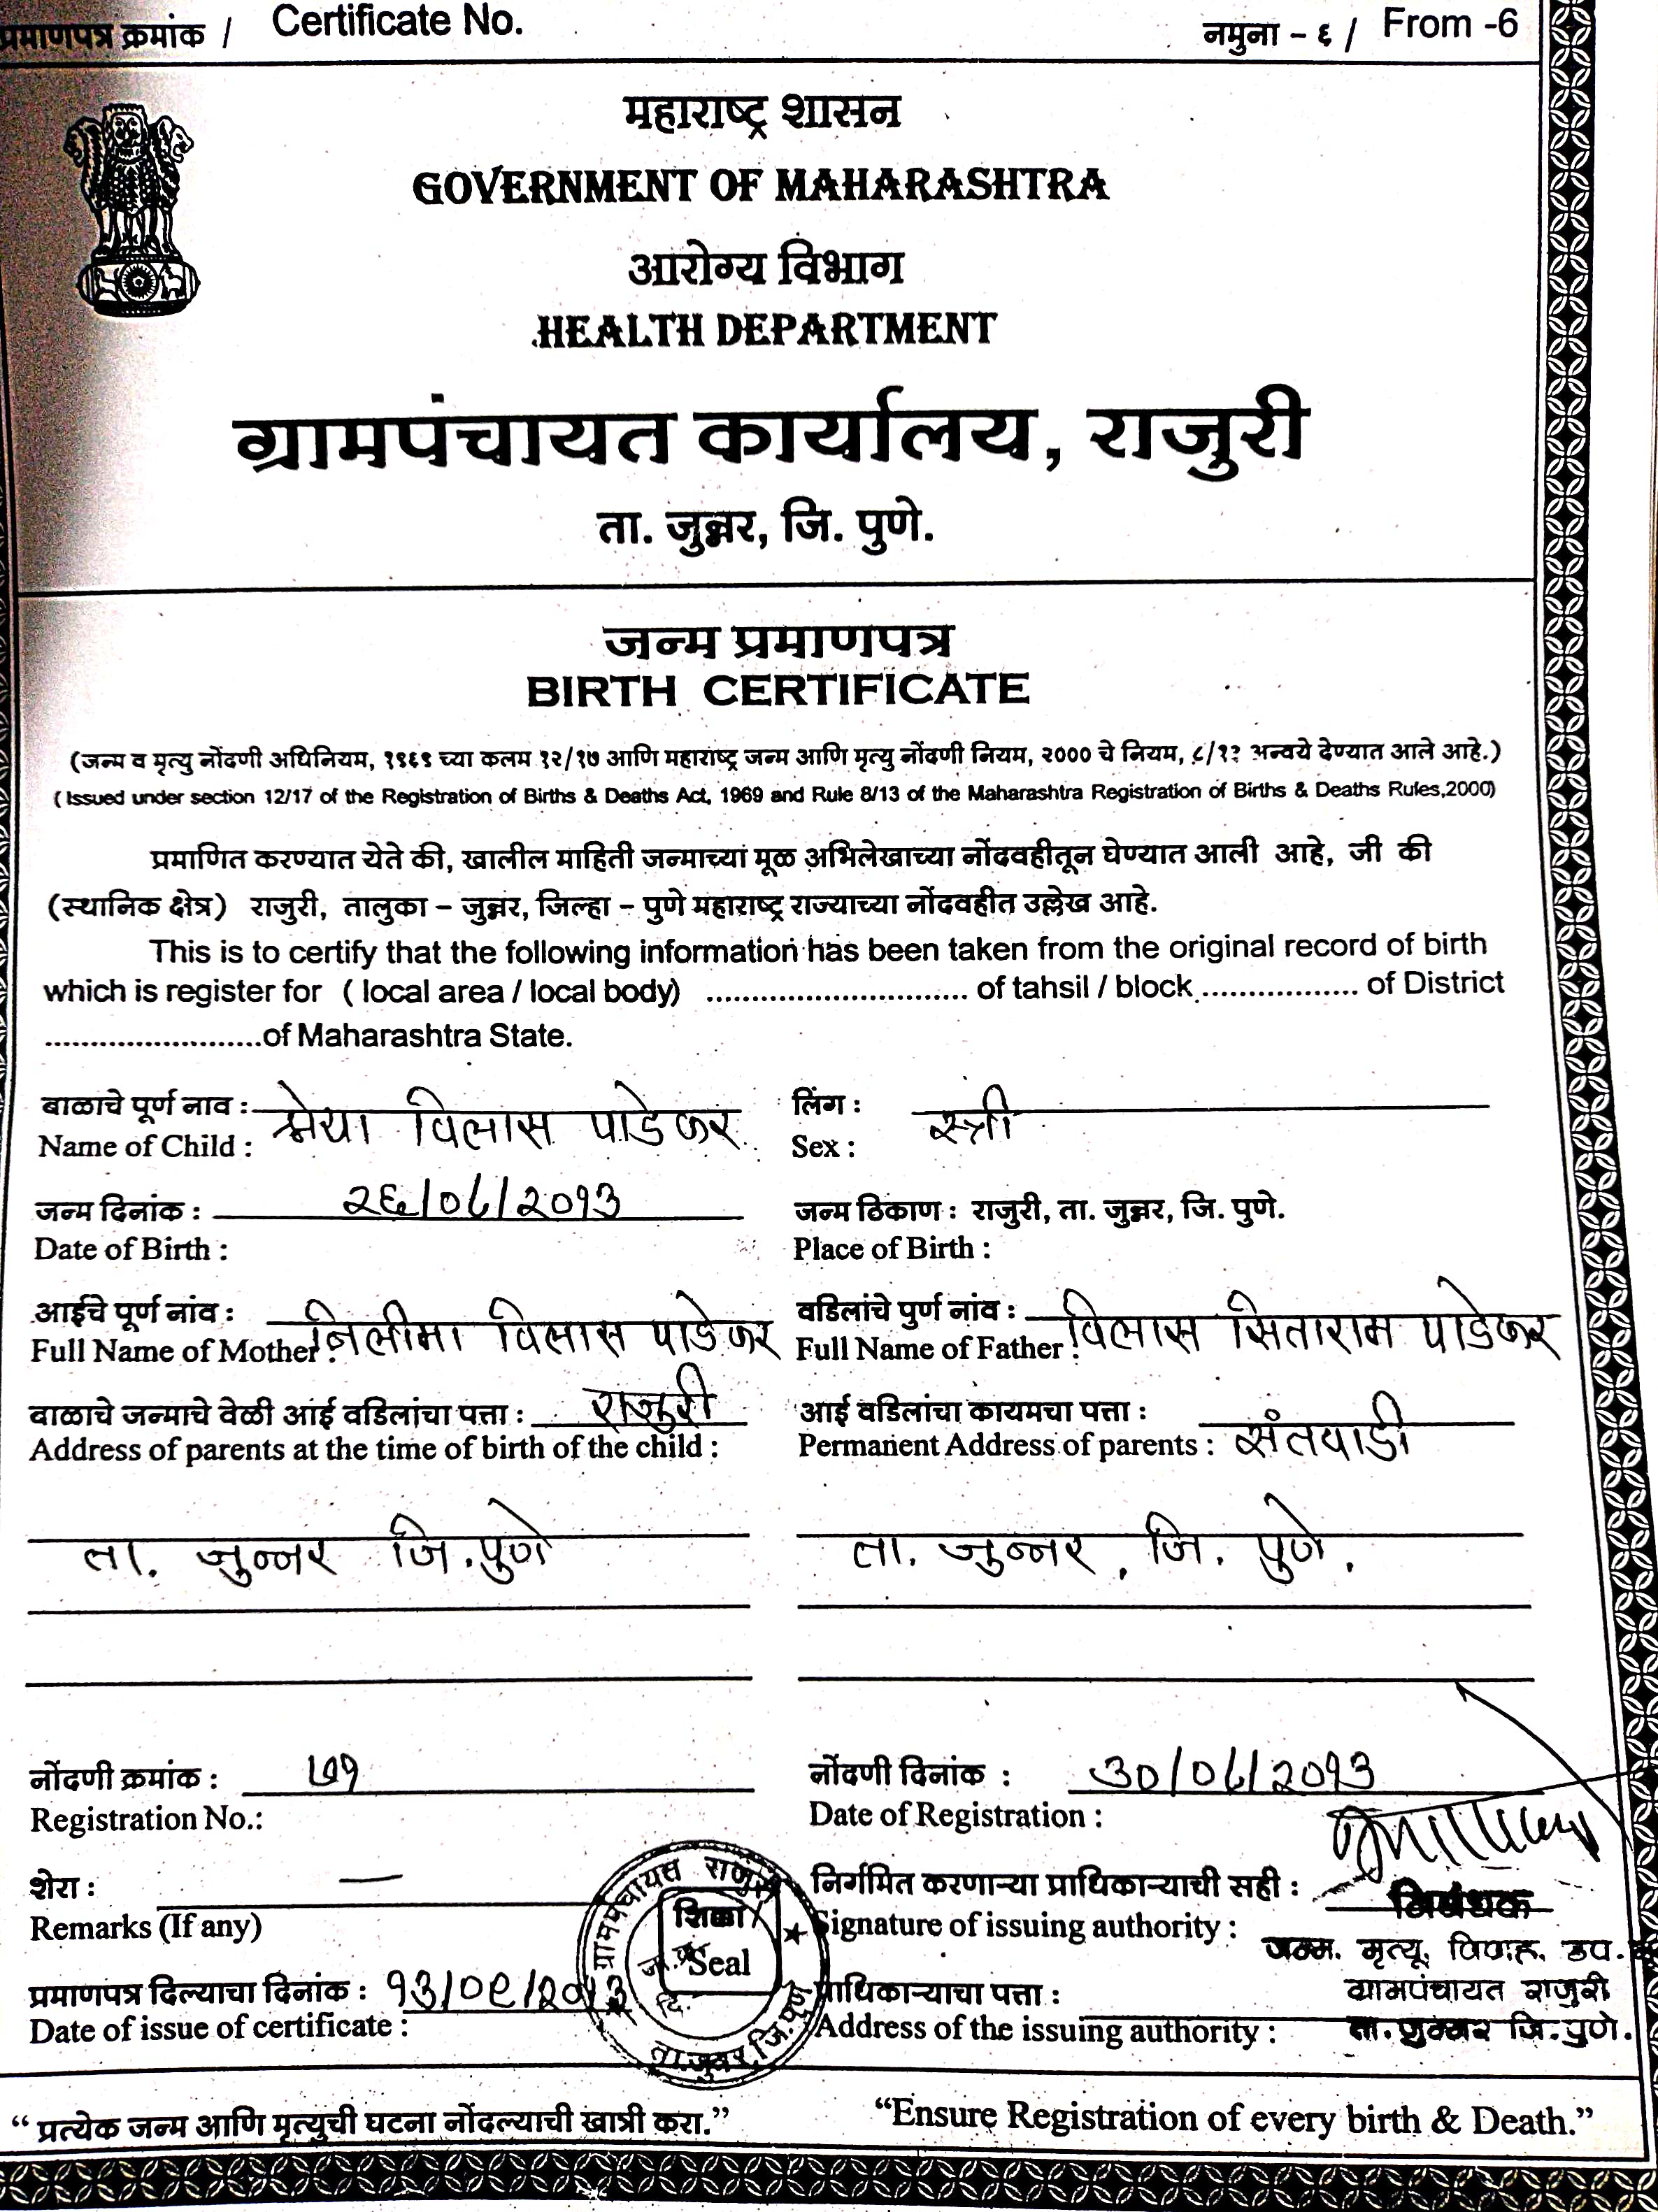 प्रमाणपत्र क्रमांक / Certificate No. नमुना - ६ / From -6
महाराष्ट्र शासन
GOVERNMENT OF MAHARASHTRA
आरोग्य विभाग
HEALTH DEPARTMENT
ग्रामपंचायत कार्यालय, राजुरी
ता. जुन्नर, जि. पुणे.
जन्म प्रमाणपत्र
BIRTH CERTIFICATE
(जन्म व मृत्यु नोंदणी अधिनियम, १९६९ च्या कलम १२/१७ आणि महाराष्ट्र जन्म आणि मृत्यु नोंदणी नियम, २००० चे नियम, ८/१३ अन्वये देण्यात आले आहे.)
( Issued under section 12/17 of the Registration of Births & Deaths Act, 1969 and Rule 8/13 of the Maharashtra Registration of Births & Deaths Rules,2000)
प्रमाणित करण्यात येते की, खालील माहिती जन्माच्या मूळ अभिलेखाच्या नोंदवहीतून घेण्यात आली आहे, जी की
(स्थानिक क्षेत्र) राजुरी, तालुका - जुन्नर, जिल्हा - पुणे महाराष्ट्र राज्याच्या नोंदवहीत उल्लेख आहे.
This is to certify that the following information has been taken from the original record of birth
which is register for ( local area / local body) ............................. of tahsil / block .................. of District
........................of Maharashtra State.
बाळाचे पूर्ण नाव : श्रेया विलास पाडेकर लिंग : स्त्री
Name of Child : Sex :
जन्म दिनांक : २६/०८/२०१३ जन्म ठिकाण : राजुरी, ता. जुन्नर, जि. पुणे.
Date of Birth : Place of Birth :
आईचे पूर्ण नांव : निलीमा विलास पाडेकर वडिलांचे पुर्ण नांव : विलास सिताराम पाडेकर
Full Name of Mother : Full Name of Father :
बाळाचे जन्माचे वेळी आई वडिलांचा पत्ता : राजुरी आई वडिलांचा कायमचा पत्ता :
Address of parents at the time of birth of the child : Permanent Address of parents : संतवाडी
ता. जुन्नर जि.पुणे ता. जुन्नर, जि. पुणे.
नोंदणी क्रमांक : ७१ नोंदणी दिनांक : ३०/०८/२०१३
Registration No.: Date of Registration :
शेरा : — निर्गमित करणाऱ्या प्राधिकाऱ्याची सही :
निबंधक
Remarks (If any) Signature of issuing authority :
जन्म. मृत्यू. विवाह. उप.
ग्रामपंचायत राजुरी
शिक्का / Seal
ता.जुन्नर, जि.पुणे
प्रमाणपत्र दिल्याचा दिनांक : १३/०९/२०१३ प्राधिकाऱ्याचा पत्ता : ग्रामपंचायत राजुरी
Date of issue of certificate : Address of the issuing authority : ता. जुन्नर जि.पुणे.
“ प्रत्येक जन्म आणि मृत्युची घटना नोंदल्याची खात्री करा.” “Ensure Registration of every birth & Death.”